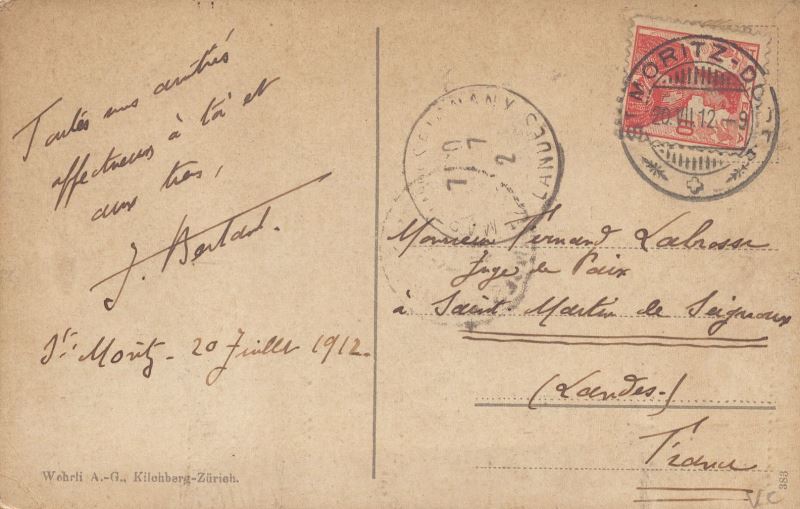 Toutes mes amitiés
affectueuses à toi et
aux tiens,
J. Bertand.
St. Moritz - 20 Juillet 1912.
Wehrli A.-G., Kilchberg-Zürich.
MORITZ-DORF
20.VII.12.-9
LANDES
Monsieur Fernand Labrosse
Juge de Paix
à Saint-Martin de Seignaux
(Landes.)
France
383